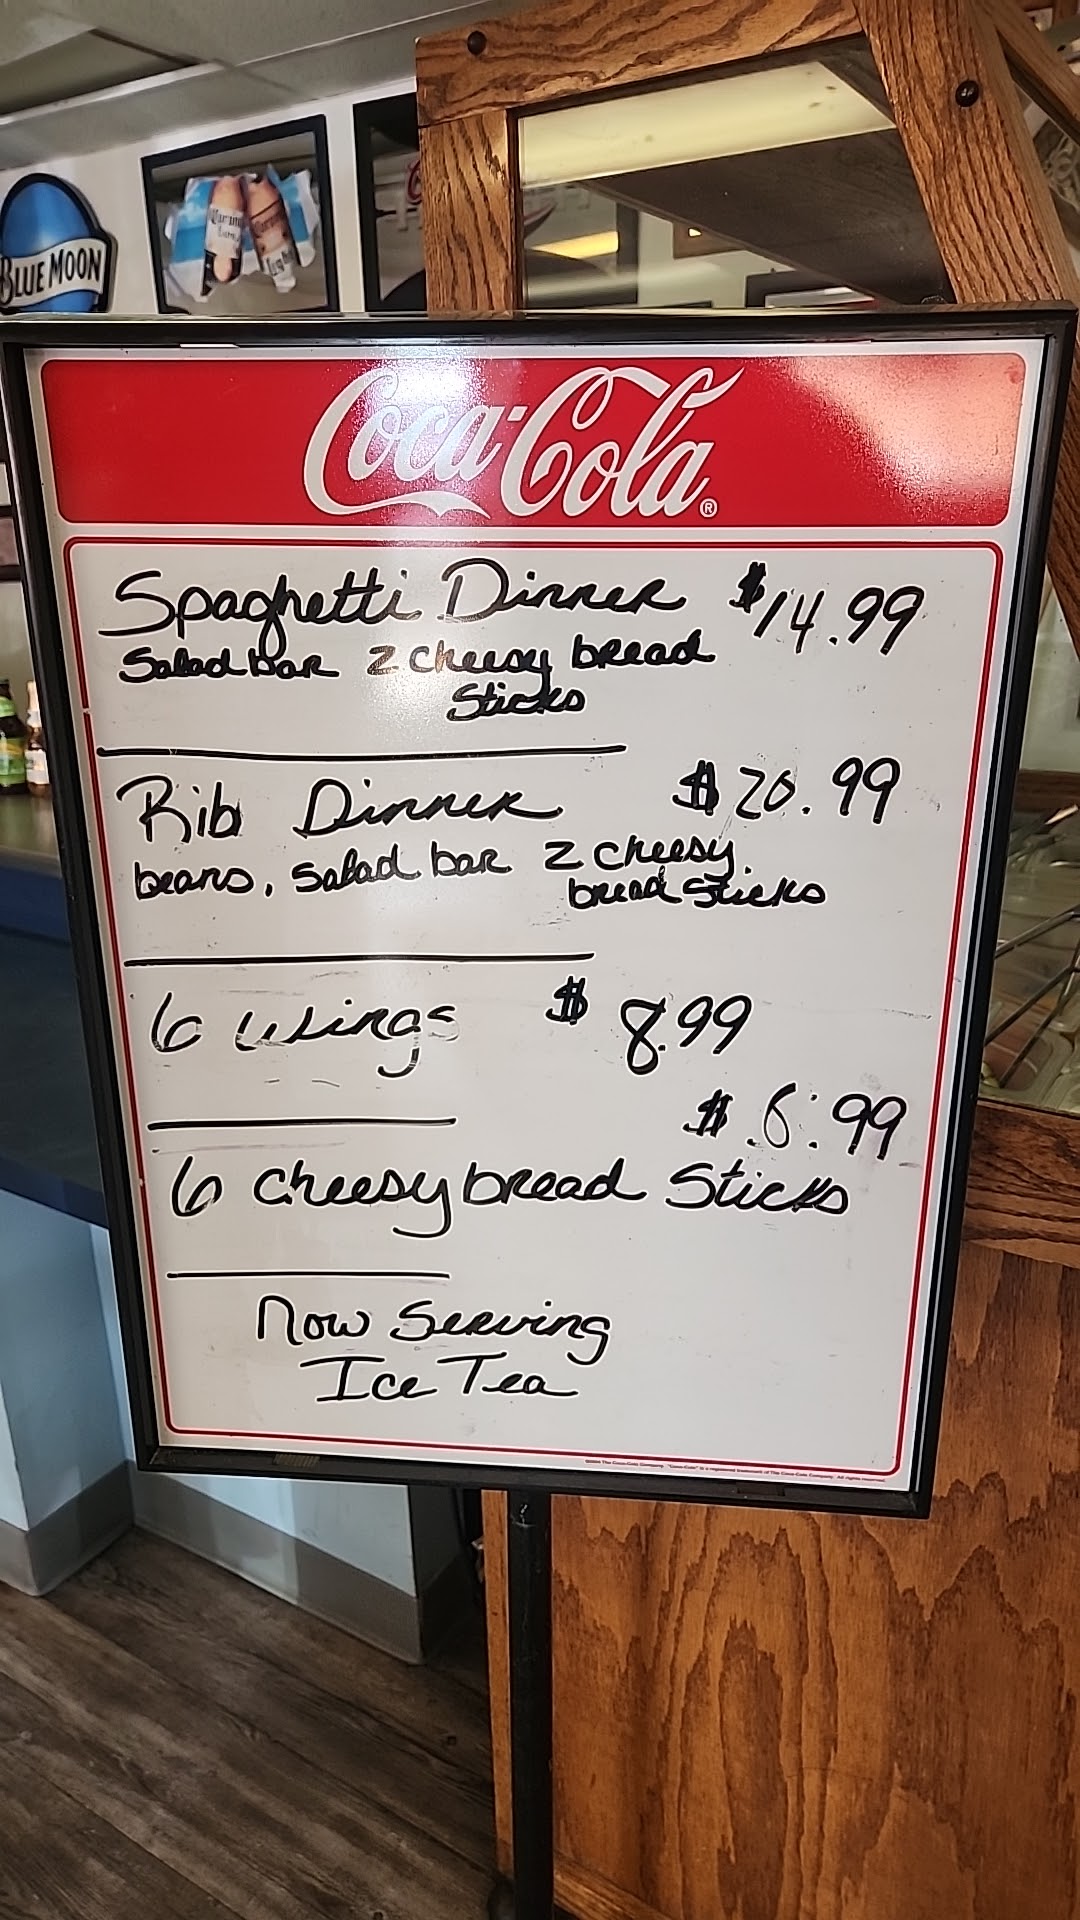 BLUE MOON
Corona Light
Coca-Cola®
Spaghetti Dinner $14.99
Salad bar 2 cheesy bread
Sticks
Rib Dinner $20.99
beans, salad bar 2 cheesy
bread sticks
6 wings $8.99
$.6.99
6 cheesy bread Sticks
Now Serving
Ice Tea